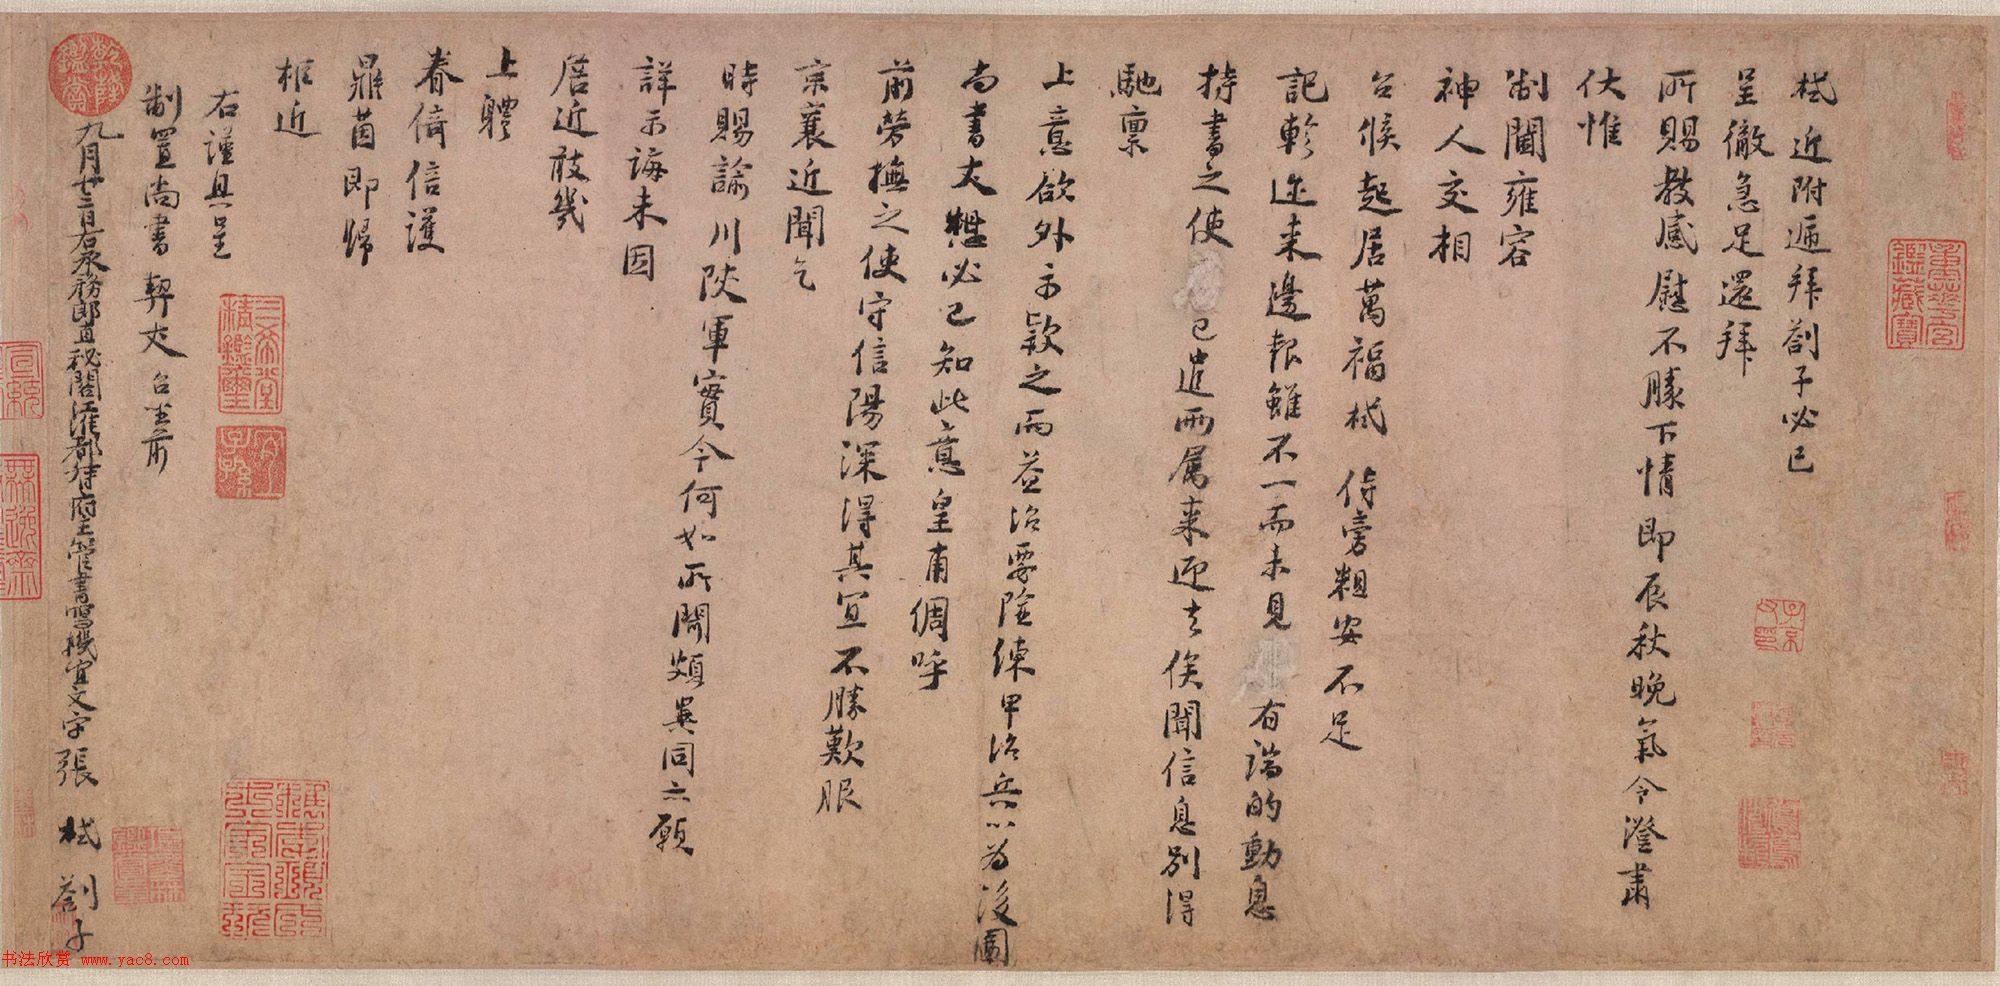 栻近附遞拜劄子必已
呈徹急足還拜
所賜教感慰不勝下情即辰秋晚氣令澄肅
伏惟
制閫雍容
神人交相
台候起居萬福栻侍旁粗安不足
記軫邇來邊報雖不一而未見有端的動息
持書之使已遣兩屬來迎去俟聞信息別得
馳稟
上意欲外示欵之而益治要險練甲治兵以為後圖
尚書大
必已知此意皇甫倜呼
前勞撫之使守信陽深得其宜不勝歎服
京襄近聞乞
時賜諭川陝軍實今何如所聞頗異同亦願
詳示誨未因
居近敢幾
上體
眷倚倍護
鼎茵即歸
柜近
右謹具呈
制置尚書契丈台坐前
九月廿三日右承務郎直祕閣江淮都督府主管書寫機宜文字張栻劄子
乾隆鑑賞
三希堂精鑑璽
宜子孫
重華宮鑑藏寶
书法欣赏 www.yac8.com